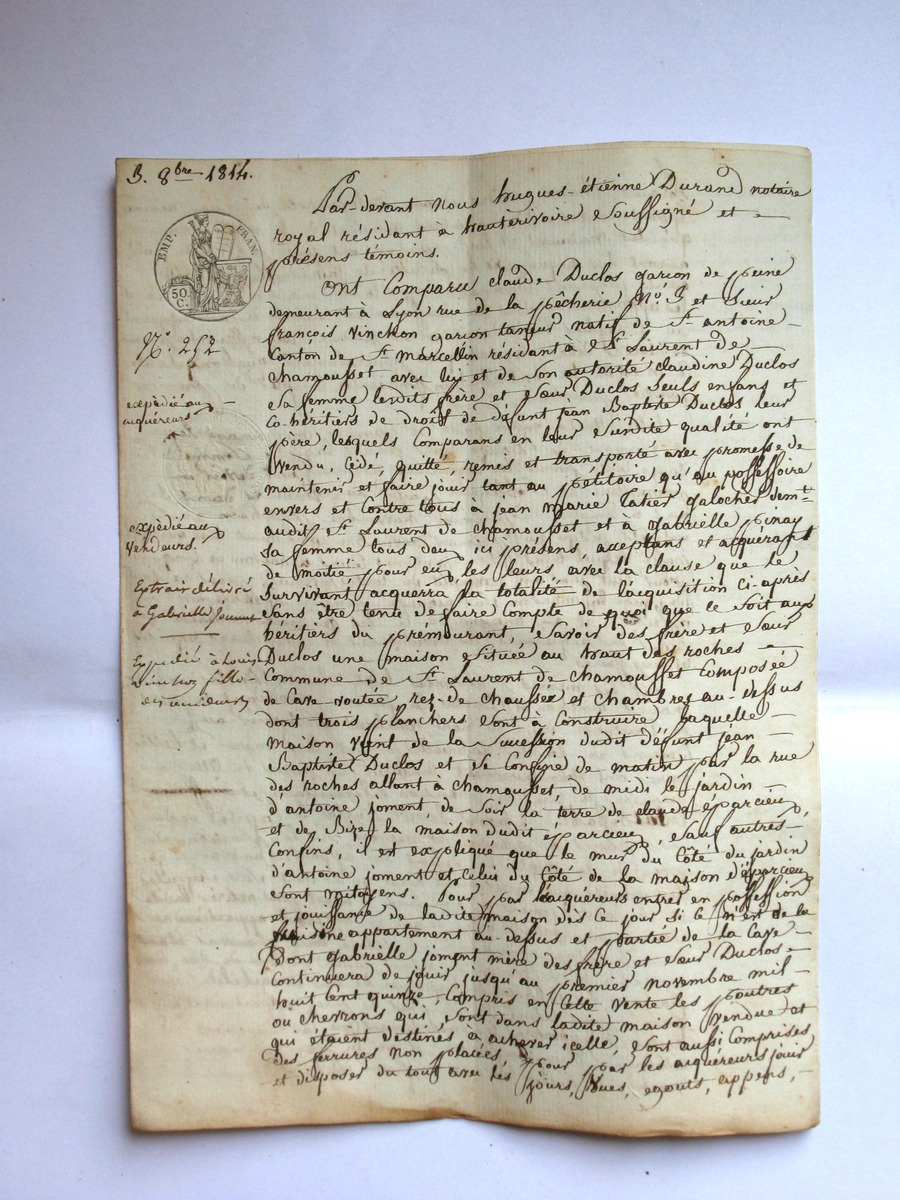 3. 8bre 1814.
EMP. FRAN.
50 C.
N.° 252
expédié aux
acquéreurs.
expédié aux
vendeurs.
Extrait délivré
à Gabrielle
Expédié à Louis
Par-devant nous hugues-étienne Durand notaire
royal résidant à hauterivoire Soussigné et
présens témoins.
Ont Comparu claude Duclos garcon de peine
demeurant à Lyon rue de la pêcherie N.° 3 et Sieur
françois Vinchon garcon tanneur natif de St. antoine
Canton de St. marcellin résidant à St. Laurent de
chamousset avec lui et de Son autorité claudine Duclos
Sa femme lesdits frère et Sœur Duclos Seuls enfans et
Co-héritiers de droit de défunt jean Baptiste Duclos leur
père, lesquels Comparans en leur Susdite qualité ont
Vendu, Cédé, quitté, remis et transporté avec promesse de
maintenir et faire jouir tant au pétitoire qu'au possessoire
envers et Contre tous à jean marie Tatier galocher demt.
audit St. Laurent de chamousset et a gabrielle pinay
Sa femme tous deux ici présens, acceptans et acquérant
de moitié, pour eux, les leurs, avec la clause que le
Survivant acquerra la totalité de l'acquisition ci-après
Sans être tenu de faire Compte de quoi que ce Soit aux
héritiers du prémourant, Savoir des frère et Sœur
Duclos une maison Située au haut des roches
Commune de St. Laurent de chamousset Composée
de Cave voutée rez-de chaussée et chambres au-dessus
dont trois planchers Sont à Construire laquelle
maison vient de la Succession dudit défunt jean
Baptiste Duclos et Se Confine de matin par la rue
des roches allant à chamousset, de midi le jardin
d'antoine joment, de Soir la terre de claude eparcieux
et de Bize la maison dudit eparcieux, Sauf autres
Confins, il est expliqué que le mur du Côté du jardin
d'antoine joment et Celui du Côté de la maison d'éparcieux
Sont mitoyens. Pour par l'acquéreurs entrer en possession
et jouissance de ladite maison dès ce jour Si ce n'est de la
Cuisine appartement au-dessus et partie de la Cave
dont gabrielle joment mère des frère et Sœur Duclos
Continuera de jouir jusqu'au premier novembre mil
huit Cent quinze, Compris en Cette vente les poutres
ou chevrons qui Sont dans ladite maison Vendue et
qui étaient destinés à achever icelle, Sont aussi Comprises
des ferrures non placées pour par les acquéreurs jouir
et disposer du tout avec Les jours, Vues, egouts, appens,